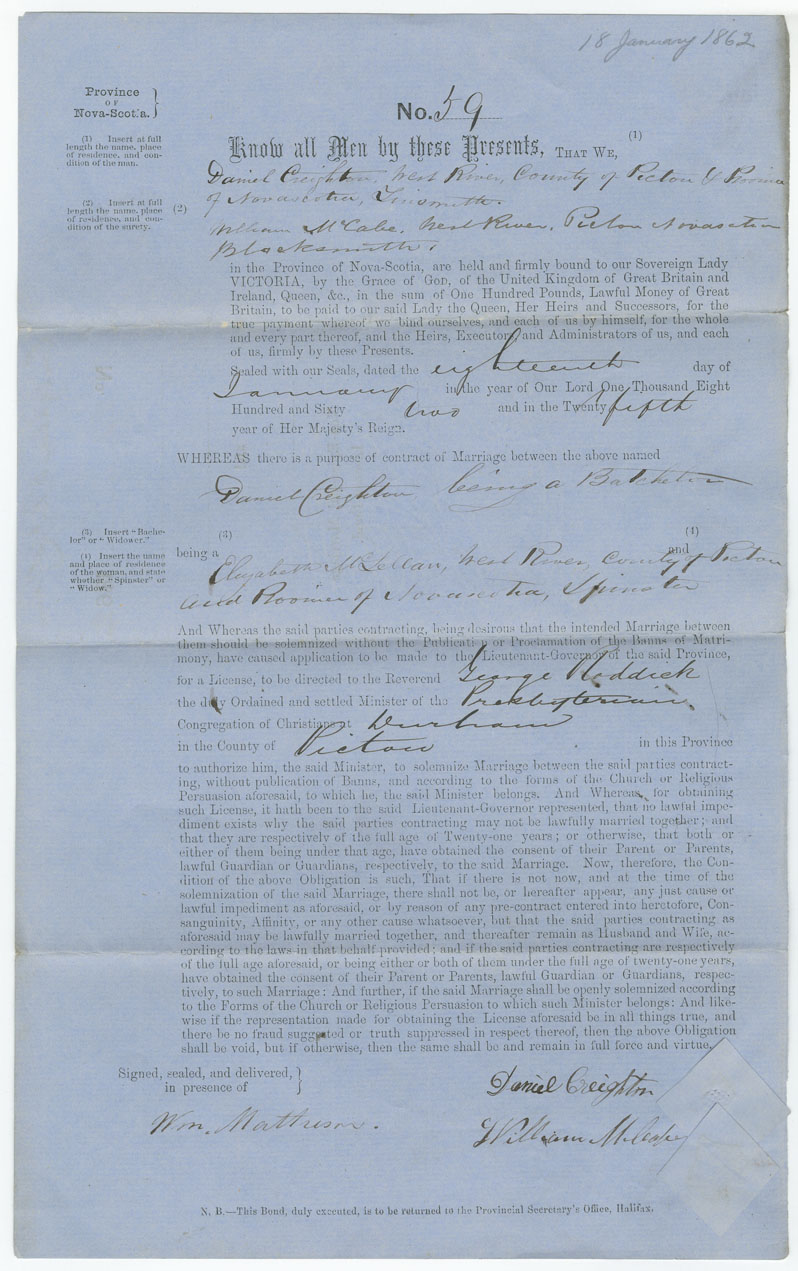 18 January 1862
Province
OF
Nova-Scotia.
No. 59
(1) Insert at full
length the name, place
of residence, and con-
dition of the man.
Know all Men by these Presents, THAT WE, (1)
Daniel Creighton, West River, County of Pictou & Province
of Novascotia, Tinsmith.
(2) Insert at full
length the name, place
of residence, and con-
dition of the surety.
(2)
William McCabe, West River, Pictou Novascotia
Blacksmith.
in the Province of Nova-Scotia, are held and firmly bound to our Sovereign Lady
VICTORIA, by the Grace of GOD, of the United Kingdom of Great Britain and
Ireland, Queen, &c., in the sum of One Hundred Pounds, Lawful Money of Great
Britain, to be paid to our said Lady the Queen, Her Heirs and Successors, for the
true payment whereof we bind ourselves, and each of us by himself, for the whole
and every part thereof, and the Heirs, Executors and Administrators of us, and each
of us, firmly by these Presents.
Sealed with our Seals, dated the eighteenth day of
January in the year of Our Lord One Thousand Eight
Hundred and Sixty two and in the Twenty fifth
year of Her Majesty's Reign.
WHEREAS there is a purpose of contract of Marriage between the above named
Daniel Creighton being a Batcheler
(3) Insert "Bache-
lor" or "Widower."
(4) Insert the name
and place of residence
of the woman, and state
whether "Spinster" or
"Widow."
(3) (4)
being a and
Elizabeth McLellan, West River, County of Pictou
and Province of Novascotia, Spinster
And Whereas the said parties contracting, being desirous that the intended Marriage between
them should be solemnized without the Publication or Proclamation of the Banns of Matri-
mony, have caused application to be made to the Lieutenant-Governor of the said Province,
for a License, to be directed to the Reverend George Roddick
the duly Ordained and settled Minister of the Presbyterian
Congregation of Christians at Durham
in the County of Pictou in this Province
to authorize him, the said Minister, to solemnize Marriage between the said parties contract-
ing, without publication of Banns, and according to the forms of the Church or Religious
Persuasion aforesaid, to which he, the said Minister belongs. And Whereas, for obtaining
such License, it hath been to the said Lieutenant-Governor represented, that no lawful impe-
diment exists why the said parties contracting may not be lawfully married together; and
that they are respectively of the full age of Twenty-one years; or otherwise, that both or
either of them being under that age, have obtained the consent of their Parent or Parents,
lawful Guardian or Guardians, respectively, to the said Marriage. Now, therefore, the Con-
dition of the above Obligation is such, That if there is not now, and at the time of the
solemnization of the said Marriage, there shall not be, or hereafter appear, any just cause or
lawful impediment as aforesaid, or by reason of any pre-contract entered into heretofore, Con-
sanguinity, Affinity, or any other cause whatsoever, but that the said parties contracting as
aforesaid may be lawfully married together, and thereafter remain as Husband and Wife, ac-
cording to the laws in that behalf provided; and if the said parties contracting are respectively
of the full age aforesaid, or being either or both of them under the full age of twenty-one years,
have obtained the consent of their Parent or Parents, lawful Guardian or Guardians, respec-
tively, to such Marriage: And further, if the said Marriage shall be openly solemnized according
to the Forms of the Church or Religious Persuasion to which such Minister belongs: And like-
wise if the representation made for obtaining the License aforesaid be in all things true, and
there be no fraud suggested or truth suppressed in respect thereof, then the above Obligation
shall be void, but if otherwise, then the same shall be and remain in full force and virtue.
Signed, sealed, and delivered,
in presence of
Daniel Creighton
Wm. Matheson.
William McCabe
N. B.—This Bond, duly executed, is to be returned to the Provincial Secretary's Office, Halifax.